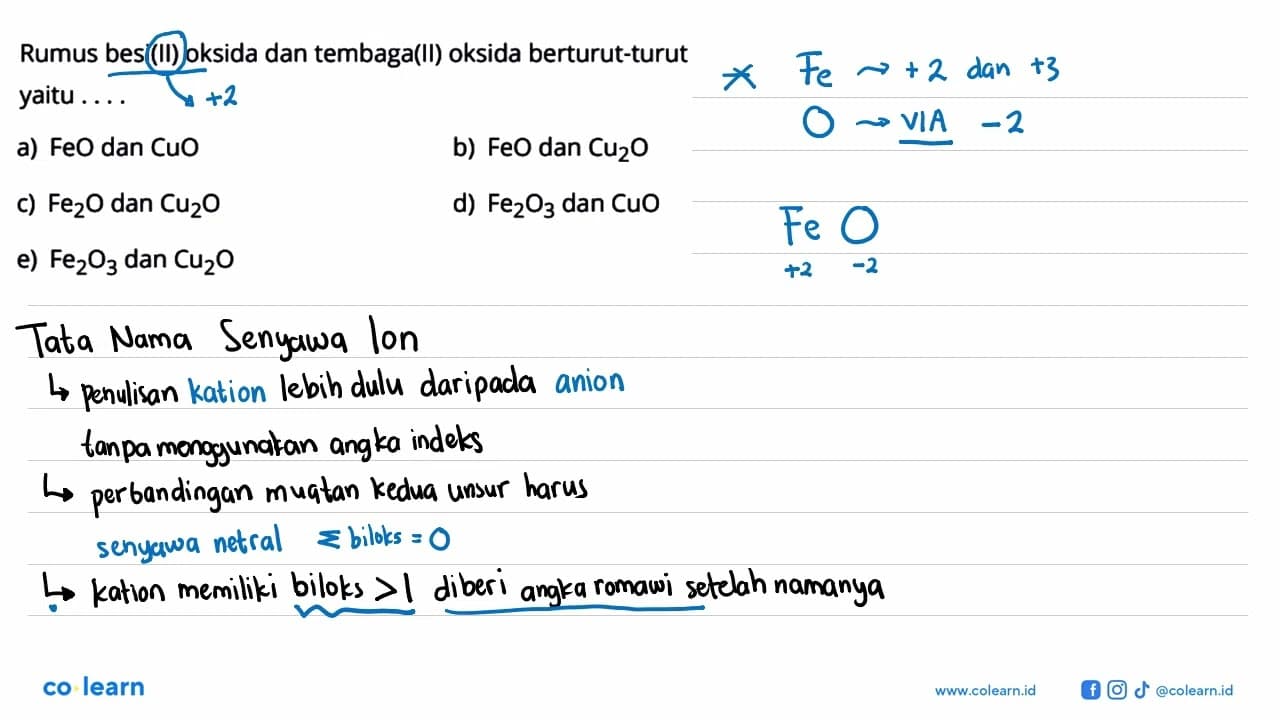 Rumus besi(II) oksida dan tembaga(II) oksida berturut-turut
yaitu . . . .
+2
a) FeO dan CuO
b) FeO dan Cu₂O
c) Fe₂O dan Cu₂O
d) Fe₂O₃ dan CuO
e) Fe₂O₃ dan Cu₂O
* Fe → +2 dan +3
O → VIA -2
Fe O
+2 -2
Tata Nama Senyawa Ion
↳ penulisan kation lebih dulu daripada anion
tanpa menggunakan angka indeks
↳ perbandingan muatan kedua unsur harus
senyawa netral Σ biloks = 0
↳ kation memiliki biloks >1 diberi angka romawi setelah namanya
co learn
www.colearn.id
@colearn.id